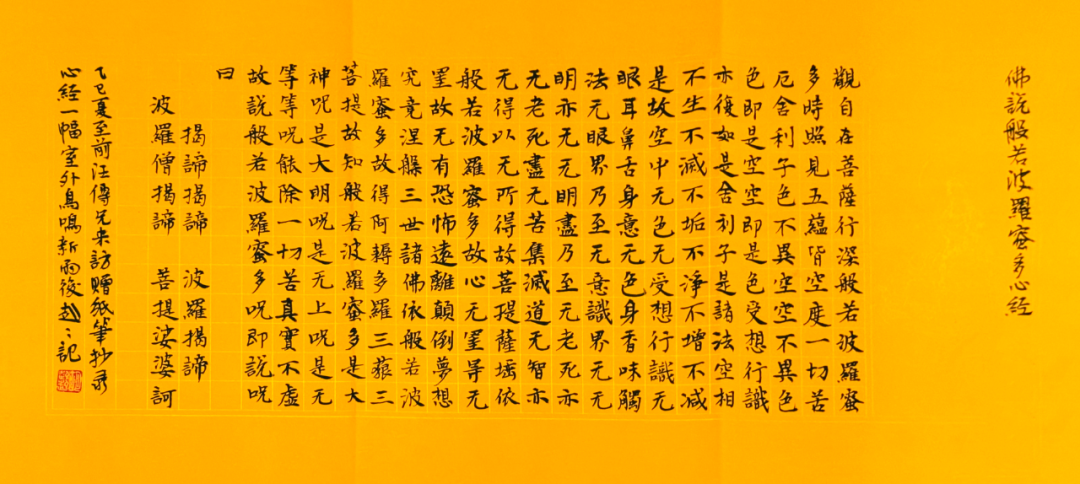 佛說般若波羅蜜多心經
觀自在菩薩行深般若波羅蜜
多時照見五蘊皆空度一切苦
厄舍利子色不異空空不異色
色即是空空即是色受想行識
亦復如是舍利子是諸法空相
不生不滅不垢不淨不增不减
是故空中无色无受想行識无
眼耳鼻舌身意无色身香味觸
法无眼界乃至无意識界无无
明亦无无明盡乃至无老死亦
无老死盡无苦集滅道无智亦
无得以无所得故菩提薩埵依
般若波羅蜜多故心无罣导无
罣故无有恐怖遠離顛倒夢想
究竟涅槃三世諸佛依般若波
羅蜜多故得阿耨多羅三藐三
菩提故知般若波羅蜜多是大
神呪是大明呪是无上呪是无
等等呪能除一切苦真實不虛
故說般若波羅蜜多呪即說呪
曰
揭諦揭諦 波羅揭諦
波羅僧揭諦 菩提娑婆訶
乙巳夏至前汪傳兄来訪贈紙筆抄录
心經一幅室外鳥鳴新雨後記